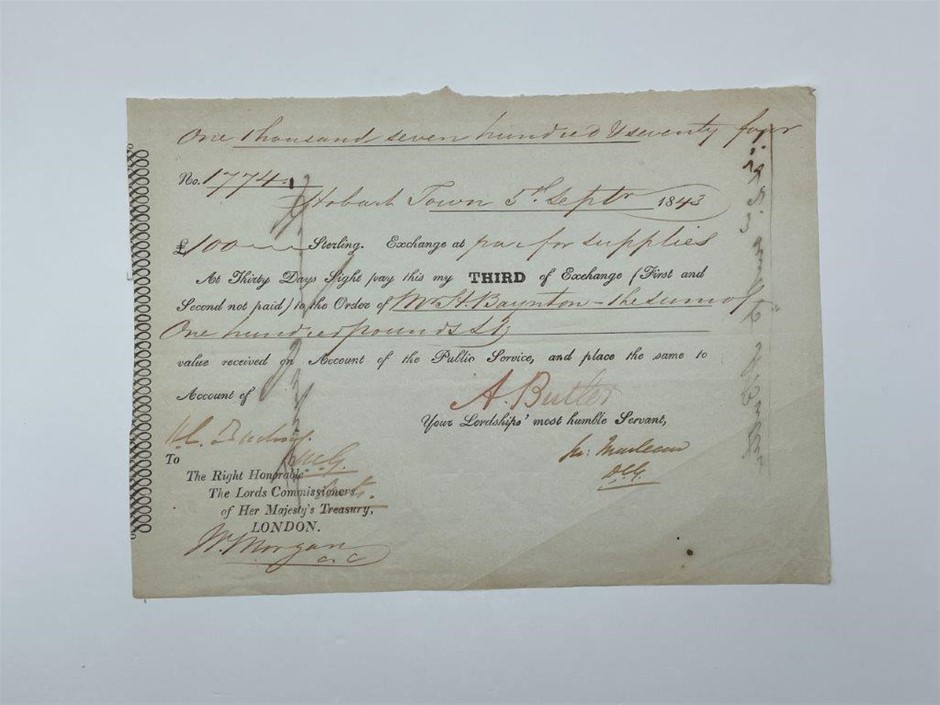 One thousand seven hundred & seventy four
No. 1774.
Hobart Town 5th Septr 1843
£100 Sterling. Exchange at par for supplies
At Thirty Days Sight pay this my THIRD of Exchange (First and
Second not paid) to the Order of Mr H. Baynton - the sum of
One hundred pounds Stg
value received on Account of the Public Service, and place the same to
Account of
A. Butler
Your Lordships' most humble Servant,
To
The Right Honorable
The Lords Commissioners
of Her Majesty's Treasury,
LONDON.
W. Morgan